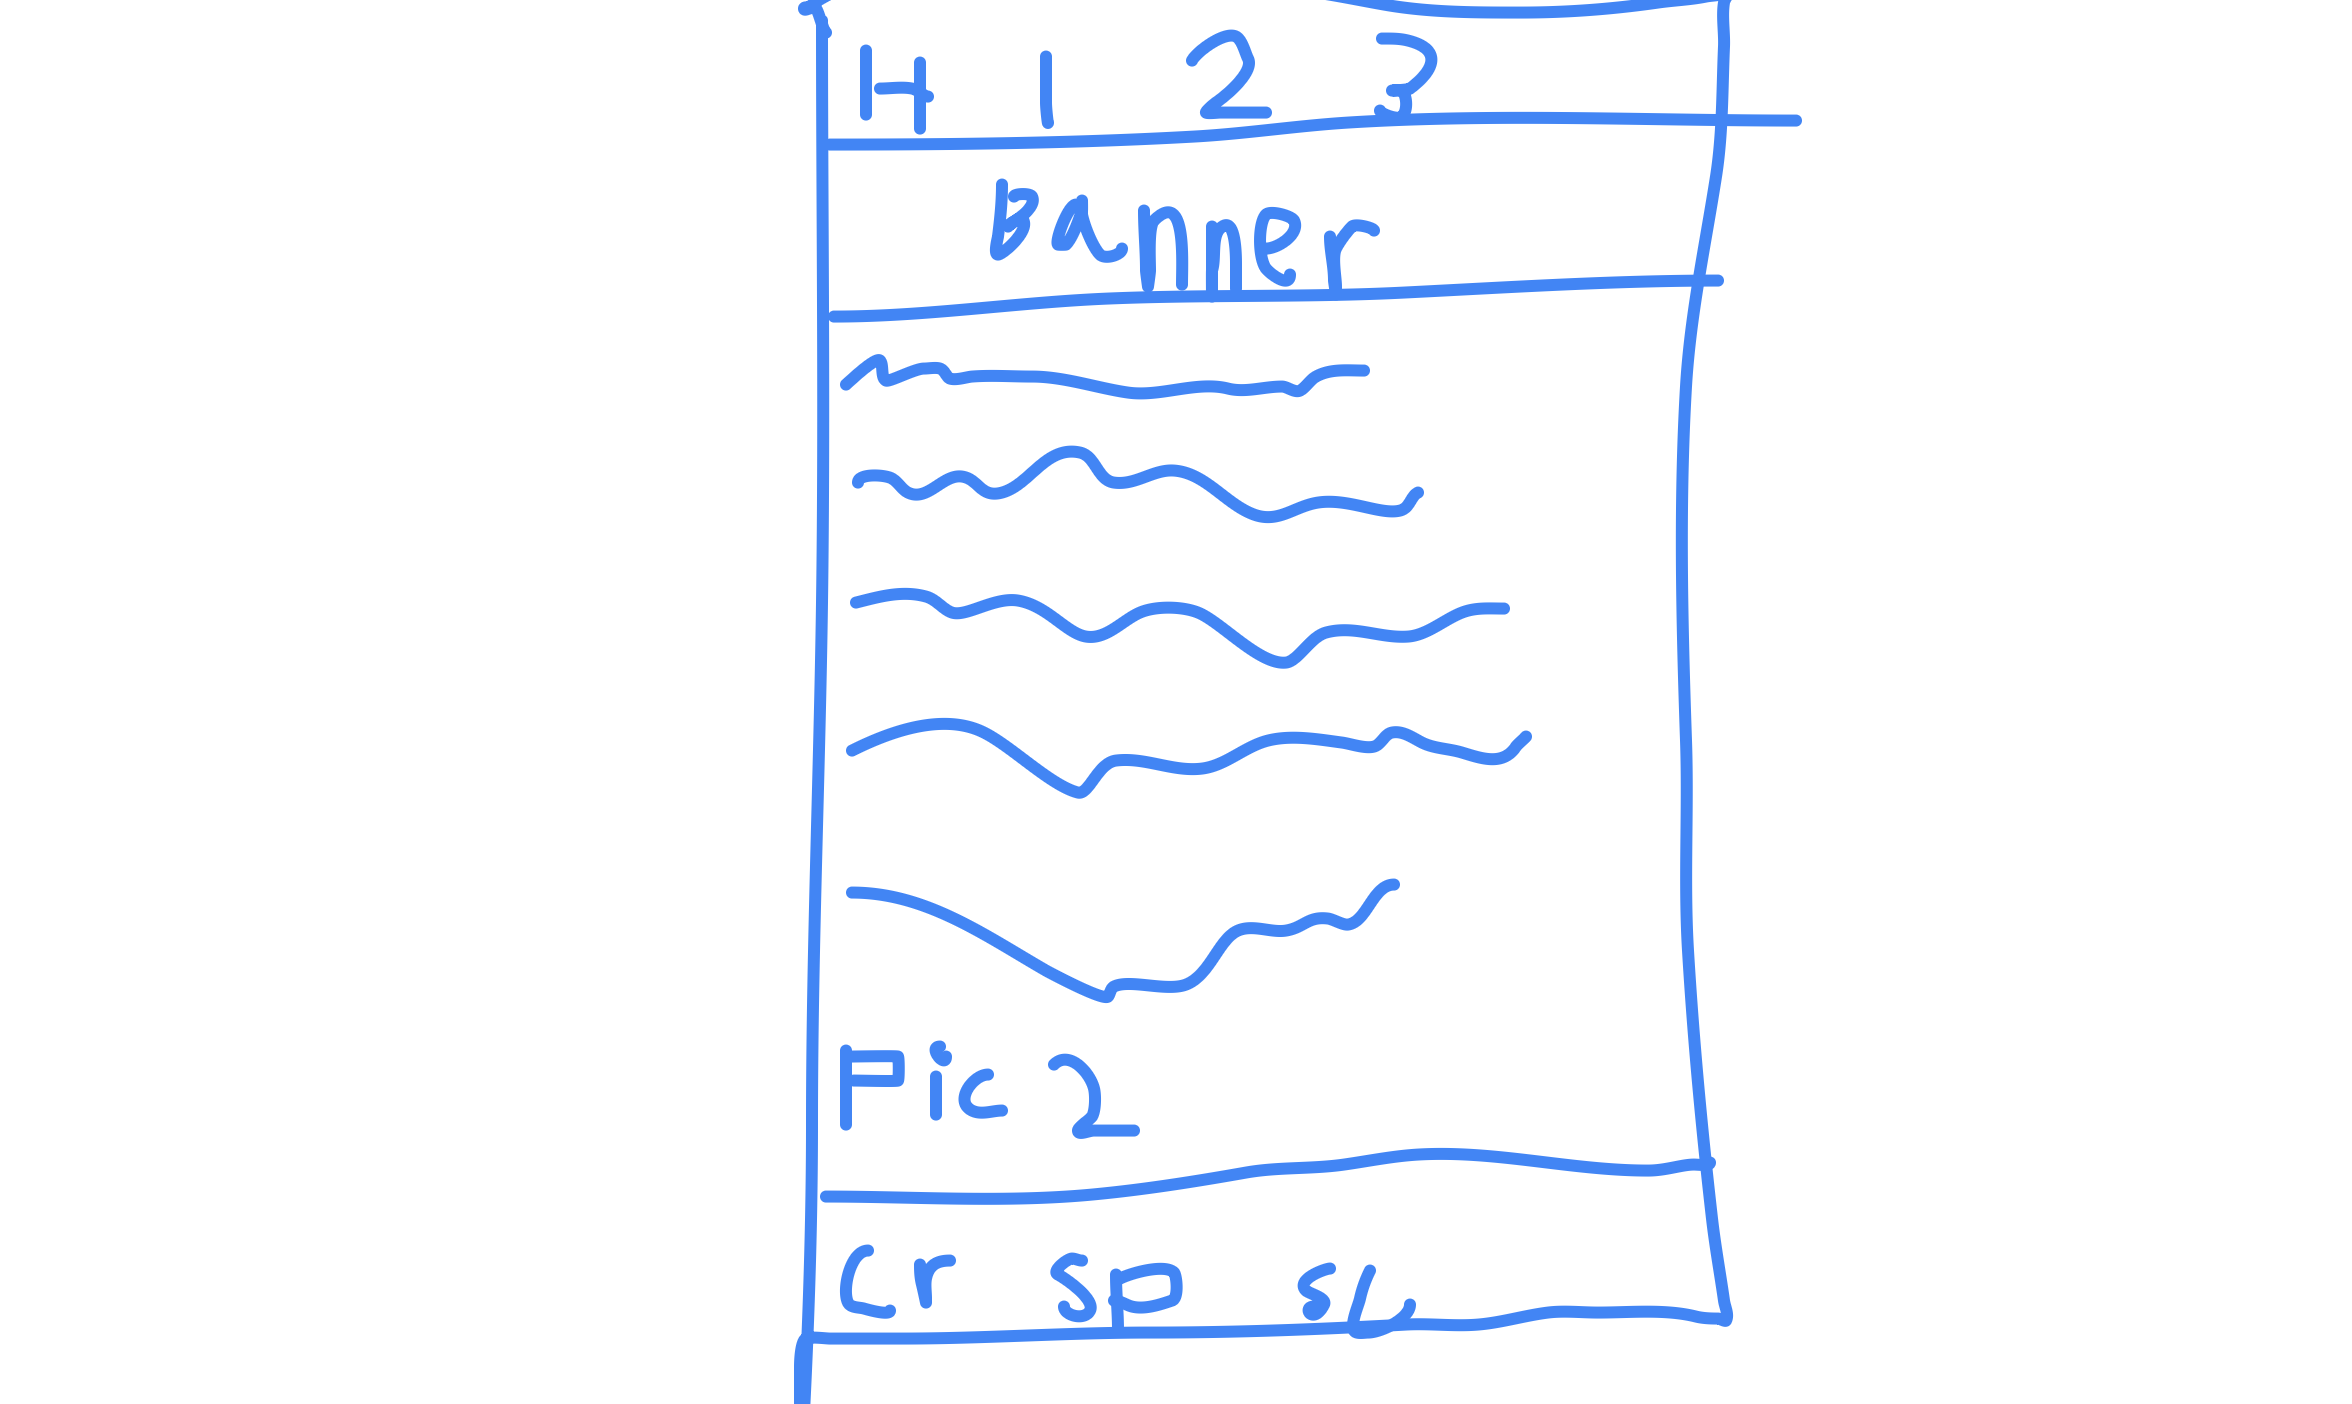 H 1 2 3
Banner
Pic 2
Cr sp sL